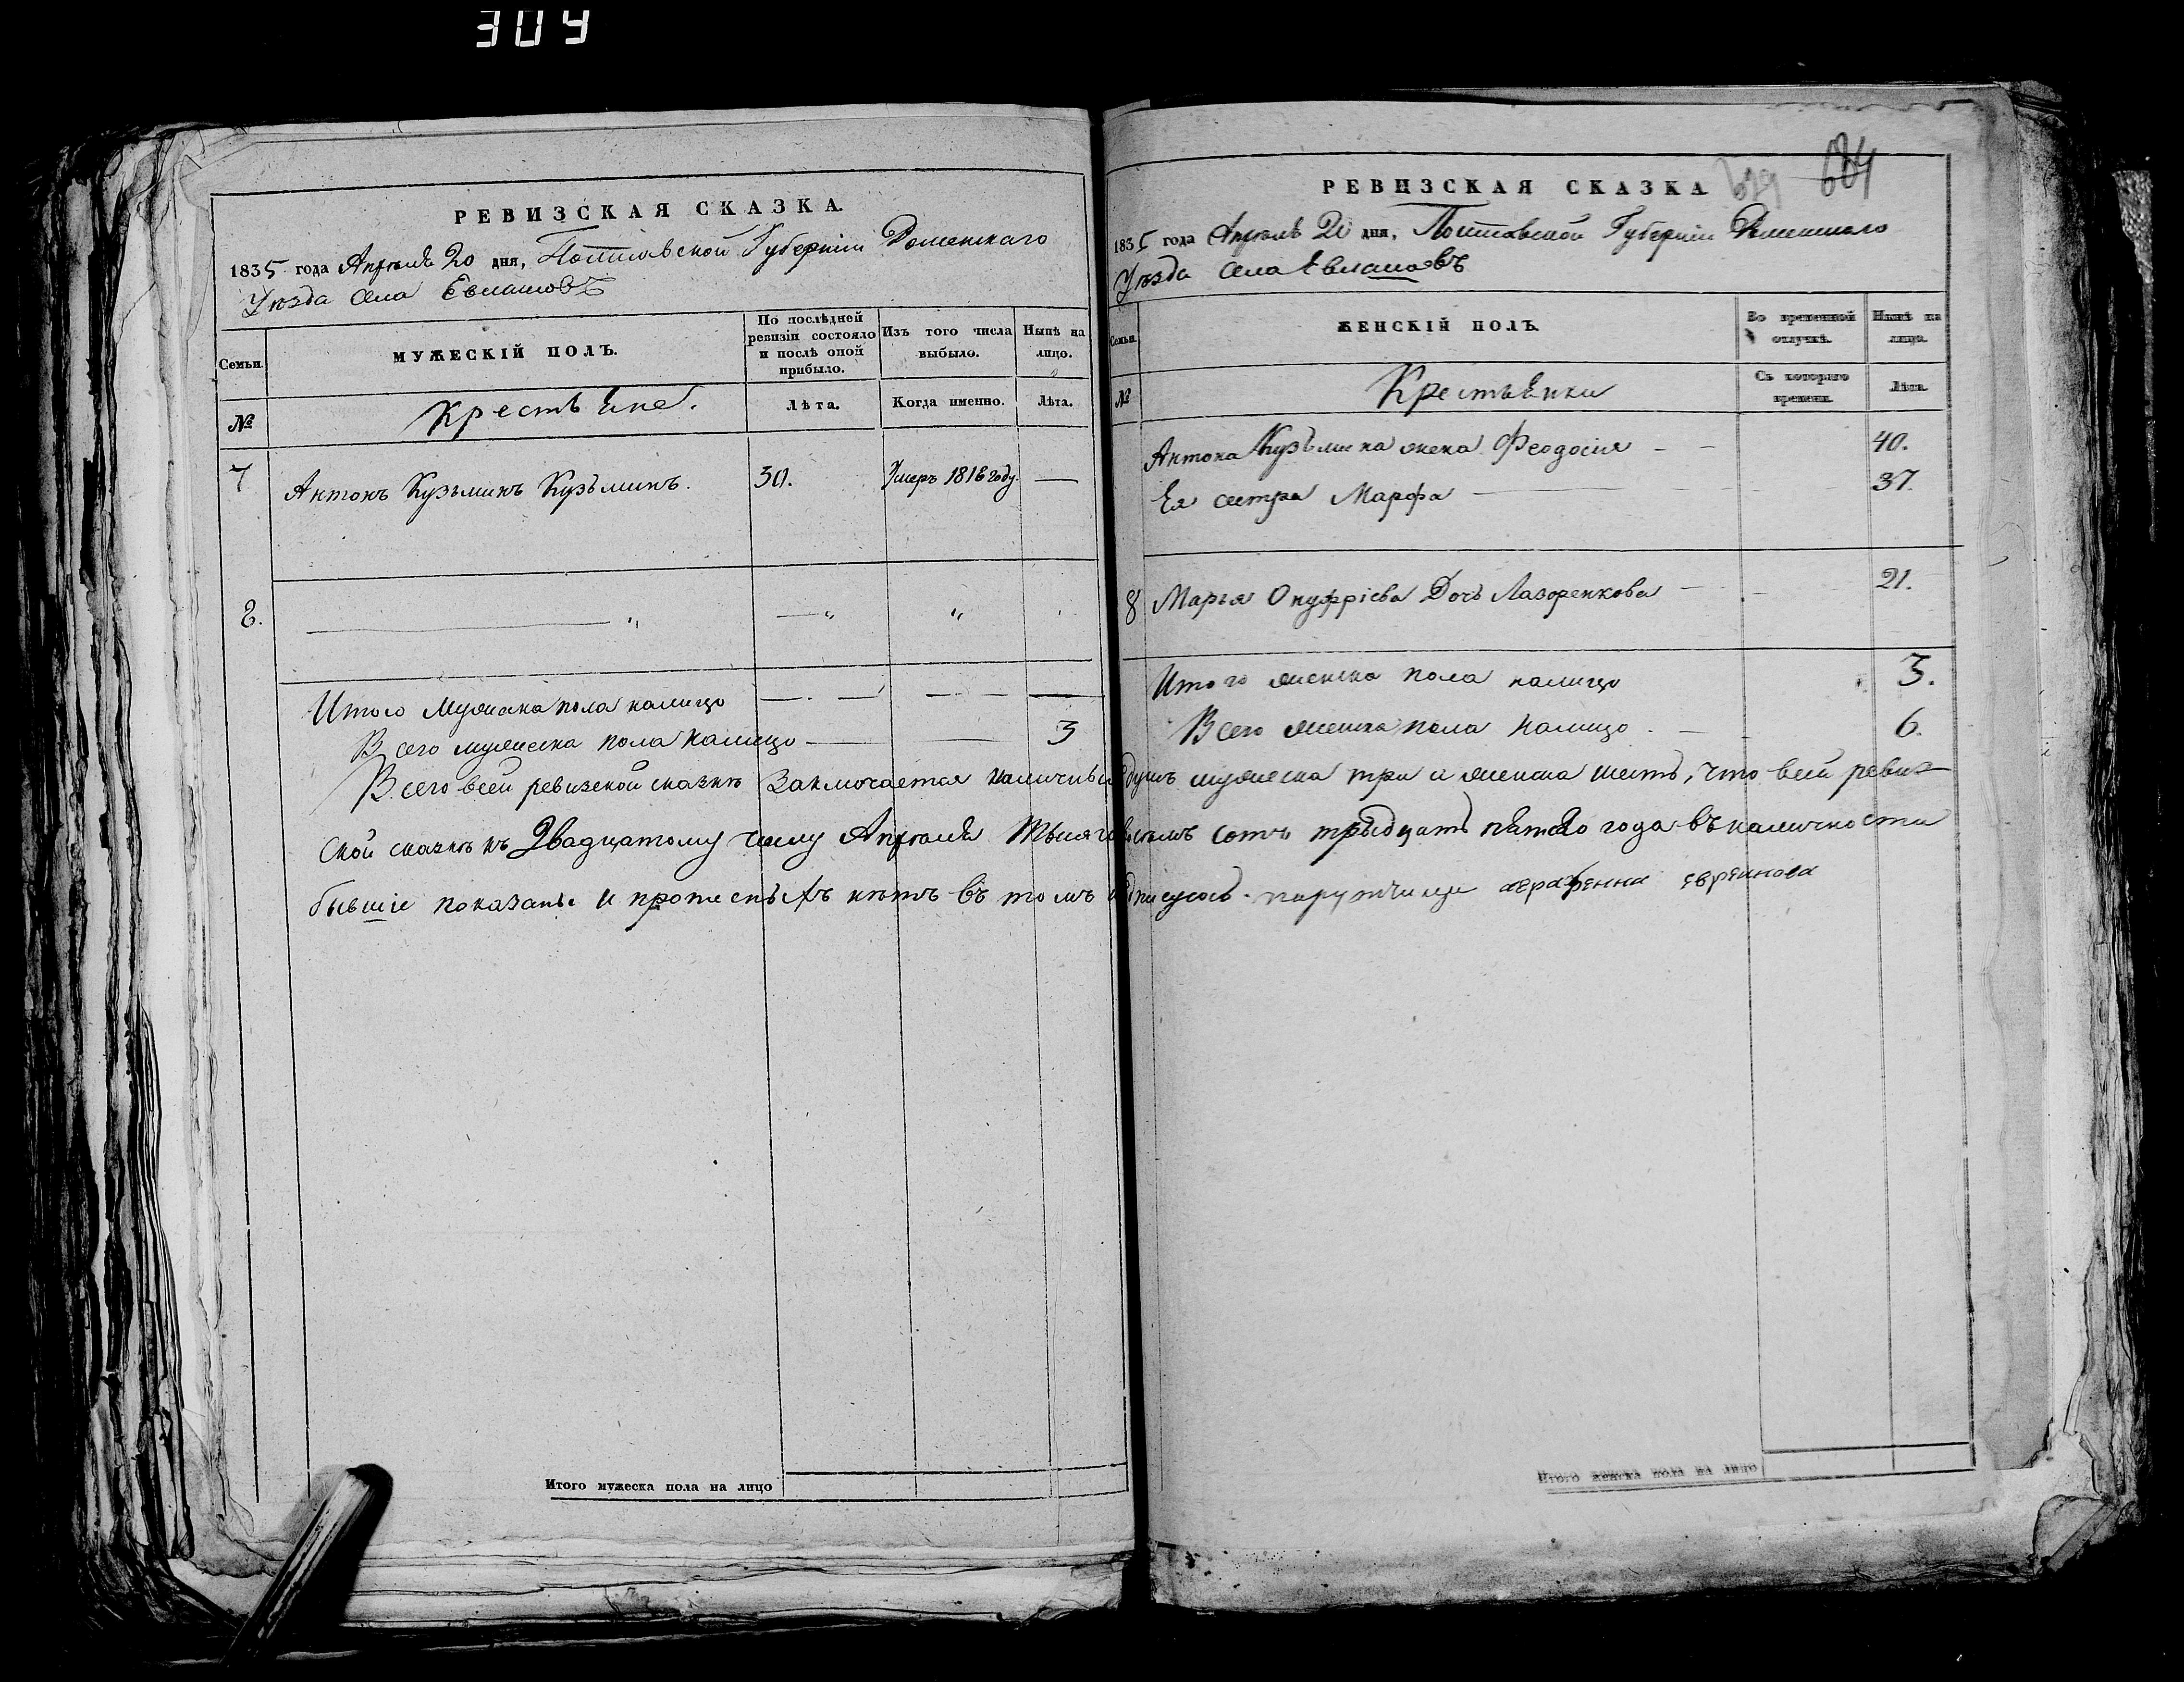 304
РЕВИЗСКАЯ СКАЗКА
1835 года Апреля 20 дня, Полтавской Губерніи Роменскаго
Уѣзда села Евлашовъ
Семьи
МУЖЕСКІЙ ПОЛЪ.
По послѣдней ревизіи состояло и послѣ оной прибыло.
Изъ того числа выбыло.
Нынѣ на лицо.
№
Крестьяне.
Лѣта.
Когда именно.
Лѣта.
7 Антонъ Кузьминъ Кузьминъ. 30. Умеръ 1816 году. —
8. — „ — „ „
Итого Мужеска пола налицо — — — — —
Всего мужеска пола налицо — — 3
РЕВИЗСКАЯ СКАЗКА
684
1835 года Апреля 20 дня, Полтавской Губерніи Роменскаго
Уѣзда села Евлашовъ
Семьи
ЖЕНСКІЙ ПОЛЪ.
Во временной отлучкѣ.
Нынѣ на лицо.
№
Крестьянки
Съ котораго времени.
Лѣта.
Антона Кузьмина жена Феодосія — — 40.
Ея сестра Марфа — 37.
8 Марья Онуфріева Дочь Лазоренкова — — 21.
Итого женска пола налицо 3.
Всего женска пола налицо — 6.
Всего всей ревизской сказкѣ Заключается наличныхъ душъ мужеска три и женска шесть, что всей ревиз-
ской сказкѣ къ Двадцатому числу Апреля Тысяча восемъ сотъ тридцать пятаго года въ наличности
бывшіе показаны и прописныхъ нѣтъ въ томъ подписуюсь. парутчица аграфенна евреинова
Итого мужеска пола на лицо
Итого женска пола на лицо